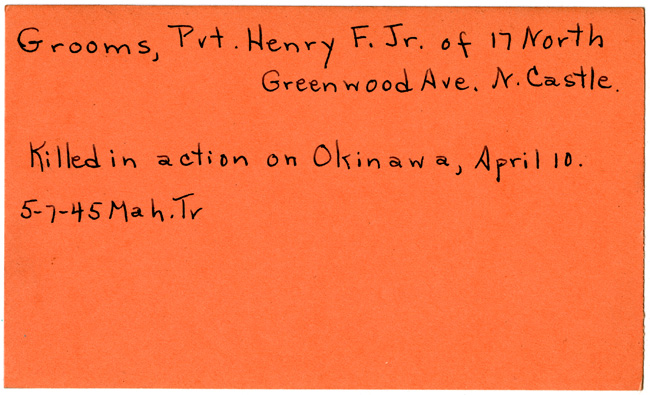 Grooms, Pvt. Henry F. Jr. of 17 North
Greenwood Ave. N. Castle.
Killed in action on Okinawa, April 10.
5-7-45 Mah. Tr